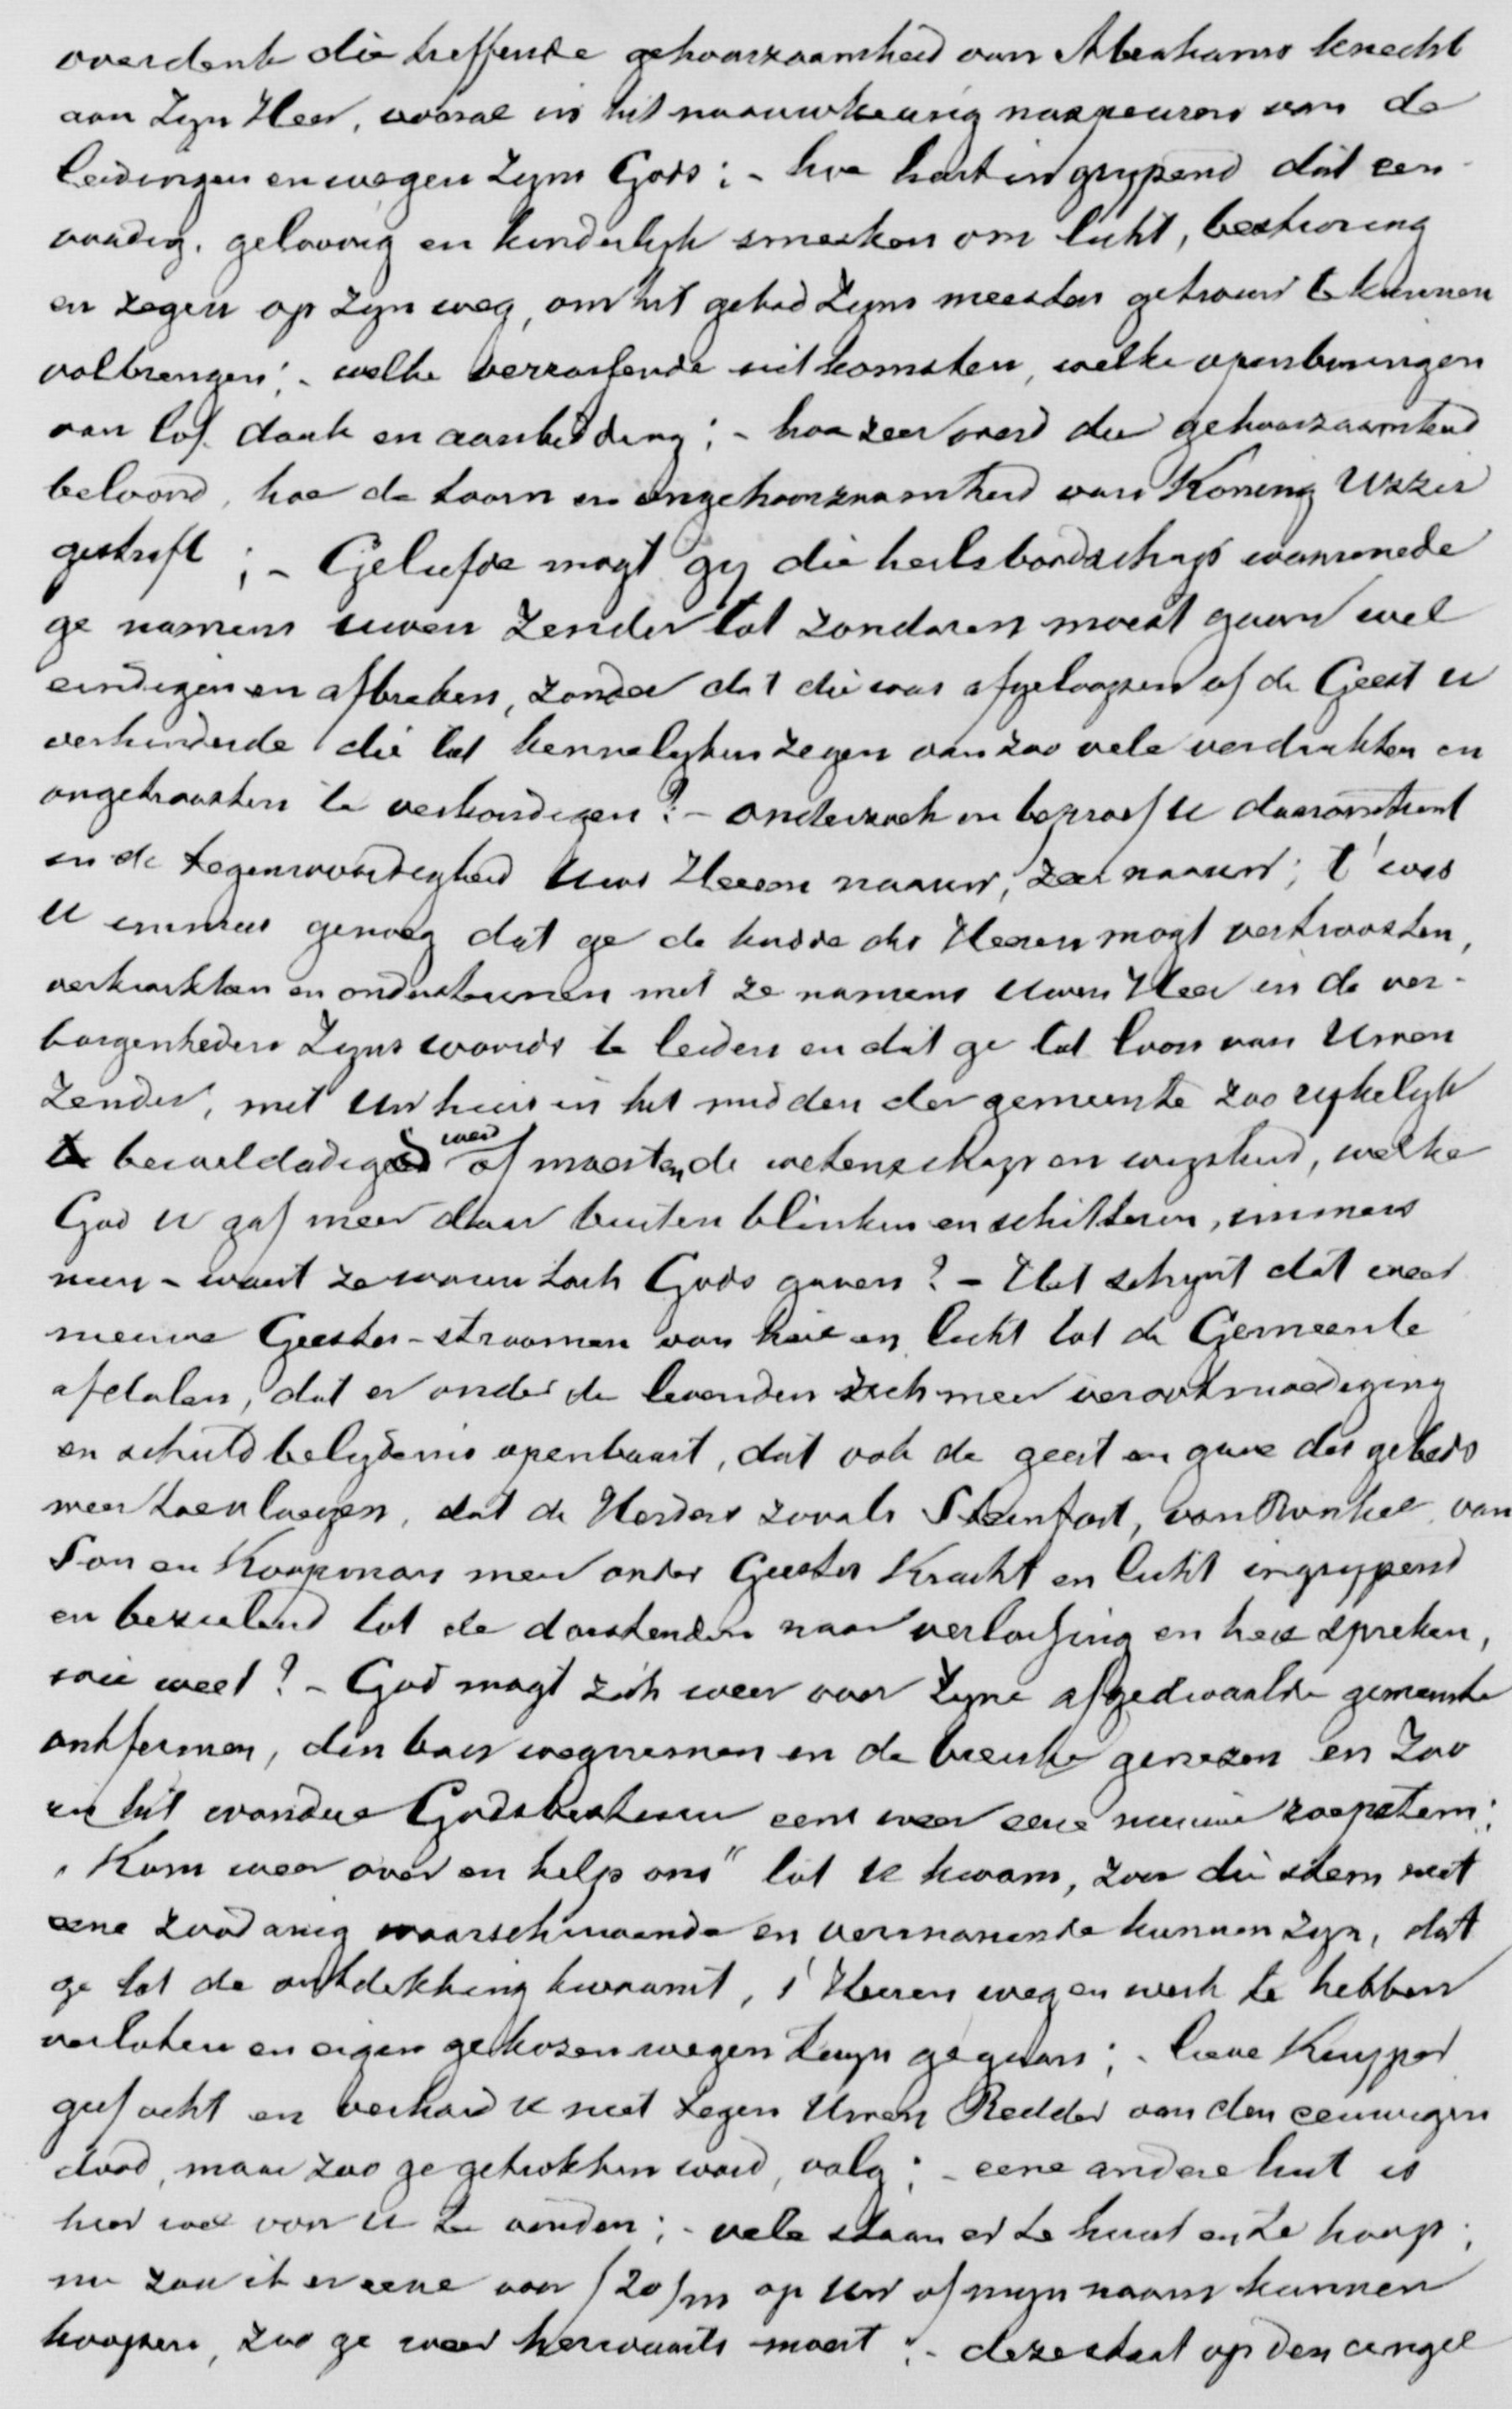 overdenk die treffende gehoorzaamheid van Abrahams knecht
aan Zyn Heer, vooral in het naauwkeurig naspeuren van de
leidingen en wegen Zyns Gods ; - hoe hartingrypend dat een-
voudig, geloovig en kinderlyk smeeken om licht, bestiering
en zegen op zyn weg, om het gebod Zyns meesters getrouw te kunnen
volbrengen ; - welke verrassende uitkomsten, welke openbaringen
van lof dank en aanbidding ; - hoe zeer werd die gehoorzaamheid
beloond, hoe de toorn en ongehoorzaamheid van Koning Uzzia
gestraft ; - Geliefde mogt gy die heilsboodschap waarmede
ge namens uwen Zender tot zondaren moest gaan wel
eindigen en afbreken, zonder dat die was afgeloopen of de Geest u
verhinderde die tot kennelyken zegen van zoo vele verdrukten en
ongetroosten te verkondigen ? - onderzoek en beproef u daaromtrent
in de tegenwoordigheid Uws Heeren naauw, zeer naauw ; t' was
U immers genoeg dat ge de kudde des Heeren mogt vertroosten,
verkwikken en ondersteunen met ze namens Uwen Heer in de ver-
borgenheden Zyns woords te leiden en dat ge tot loon van Uwen
Zender, met Uw huis in het midden der gemeente zoo rykelyk
beweldadigd werd of moesten de wetenschap en wysheid, welke
God u gaf meer daar buiten blinken en schitteren, immers
neen - want ze waren toch Gods gaven ? - Het schynt dat weer
nieuwe Geestes-stroomen van heil en licht tot de Gemeente
afdalen, dat er onder de levenden zich meer verootmoediging
en schuldbelydenis openbaart, dat ook de geest en gave des gebeds
meer toenloegen, dat de Herders zooals Steinfort, van Ronkel van
Son en Koopmans meer onder Geestes Kracht en licht ingrypend
en bezielend tot de dorstenden naar verlossing en heil spreken,
wie weet ? - God mogt zich weer over Zyne afgedwaalde gemeente
ontfermen, den ban wegnemen en de breuke genezen en Zoo
in het wondere Godsbestuur eens weer eene nieuwe roepstem :
„Kom weer over en help ons" tot U kwam, zou die stem niet
eene zoodanig waarschuwende en vermanende kunnen zyn, dat
ge tot de ontdekking kwaamt, s' Heeren weg en werk te hebben
verlaten en eigen gekozen wegen te zyn gegaan ; - lieve Kuyper
geef acht en verhard U niet tegen Uwen Redder van den eeuwigen
dood, maar zoo ge getrokken word, volg ; - eene andere hut is
hier wel voor U te vinden ; - vele staan er te huur en te koop ;
nu zou ik er eene voor /20/m op Uw of myn naam kunnen
koopen, zoo ge weer herwaarts moest ; - deze staat op den cingel